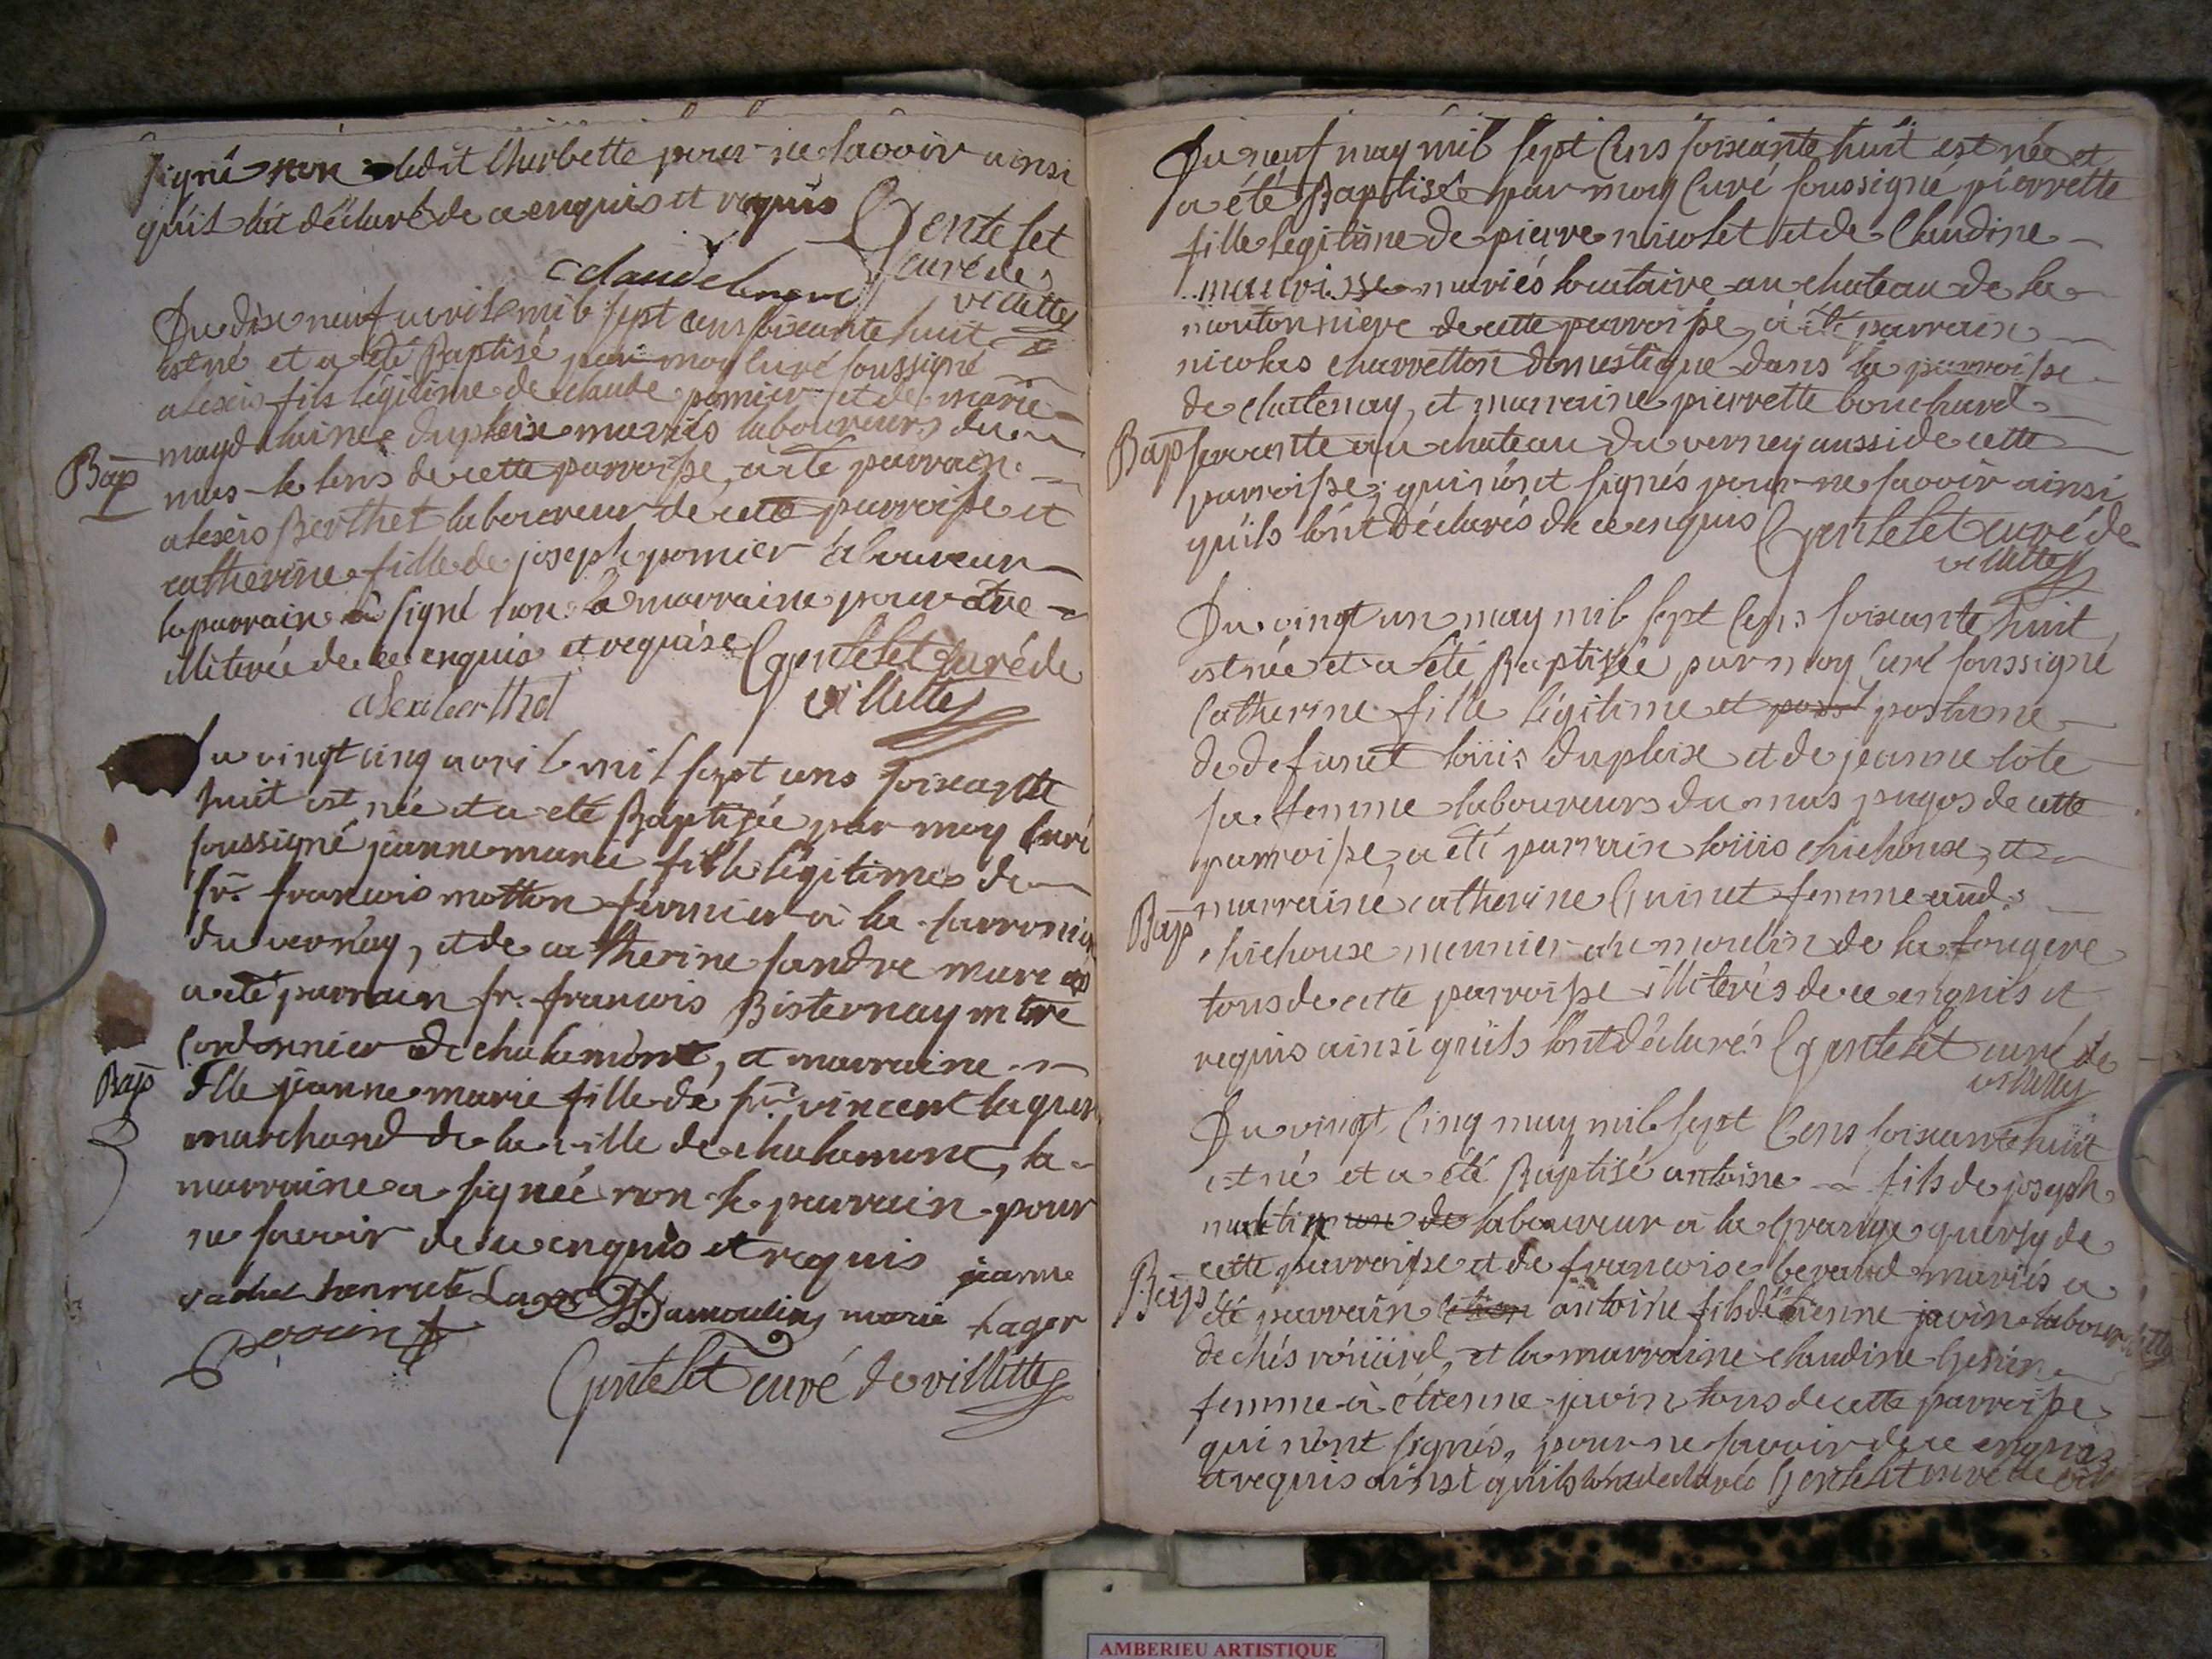 signé non ledit Cherbette pour ne savoir ainsi
qu'il l'at déclaré de ce enquis et requis
Gentelet
curé de
villette
Du dix neuf avril mil sept cens soixante huit
est né et a été Baptisé par moy curé soussigné
alexis fils légitime de claude pomier et de marie
magdelaine dupleix mariés laboureurs du
mas le lens de cette parroisse, a été parrain
Bap
alexis Berthet laboureur de cette parroisse et
catherine fille de joseph pomier laboureur
le parrain a signé non la marraine pour etre
illiterée de ce enquis et requise Gentelet curé de
villette
alexi berthet
Du vingt cinq avril mil sept cens soixante
huit est née et a eté Baptisée par moy curé
soussigné jeanne marie fille légitime de
sr. francois motton fermier a la
du vernay, et de catherine fandre mariés
a eté parrain sr. francois Bisternay mtre
cordonnier de chalamont, et marraine
Bap
Dlle jeanne marie fille de sr. vincent lager
marchand de la ville de chalamont, la
marraine a signée non le parrain pour
ne savoir de ce enquis et requis
jeanne
henriete Lager Damoulin marie Lager
perrin
Gentelet curé de villette
Du neuf may mil sept cens soixante huit est née et
a été Baptisée par moy curé soussigné pierrette
fille légitime de pierre nicolet et de claudine
mauvisse mariés locataire au chateau de la
moutonniere de cette parroisse, a été parrain
nicolas charretton domestique dans la parroisse
de chatenay, et marraine pierrette bouchard
Bap servante au chateau du verney aussi de cette
parroisse, qui n'ont signés pour ne savoir ainsi
qu'ils l'ont déclarés de ce enquis Gentelet curé de
villette
Du vingt un may mil sept cens soixante huit
est née et a été Baptisée par moy curé soussigné
catherine fille légitime et post postume
de defunct loüis dupleix et de jeanne lote
sa femme laboureurs du mas pugos de cette
parroisse, a été parrain loüis chichoux, et
marraine catherine Guinet femme aud.
Bap
chichoux meunier au moulin de la fougere
tous de cette parroisse illiterés de ce enquis et
requis ainsi qu'ils l'ont déclarés Gentelet curé de
villette
Du vingt cinq may mil sept cens soixante huit
est né et a été Baptisé antoine fils de joseph
laboureur a la Grange quersy de
cette parroisse et de francoise berard mariés a
Bap
été parrain antoine fils d'etienne javin laboureur
de chés roüard, et la marraine claudine Genin
femme a étienne javin tous de cette parroisse
qui n'ont signés, pour ne savoir de ce enquis
et requis ainsi qu'ils l'ont déclarés Gentelet curé de
AMBERIEU ARTISTIQUE